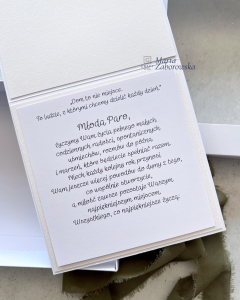 Marta
Zaborowska
„Dom to nie miejsce.
To ludzie, z którymi chcemy dzielić każdy dzień.”
Młoda Paro,
życzymy Wam życia pełnego małych
codziennych radości, spontanicznych
uśmiechów, rozmów do późna
i marzeń, które będziecie spełniać razem.
Niech każdy kolejny rok przynosi
Wam jeszcze więcej powodów do dumy z tego,
co wspólnie stworzycie,
a miłość zawsze pozostaje Waszym
najpiękniejszym miejscem.
Wszystkiego, co najpiękniejsze życzą,